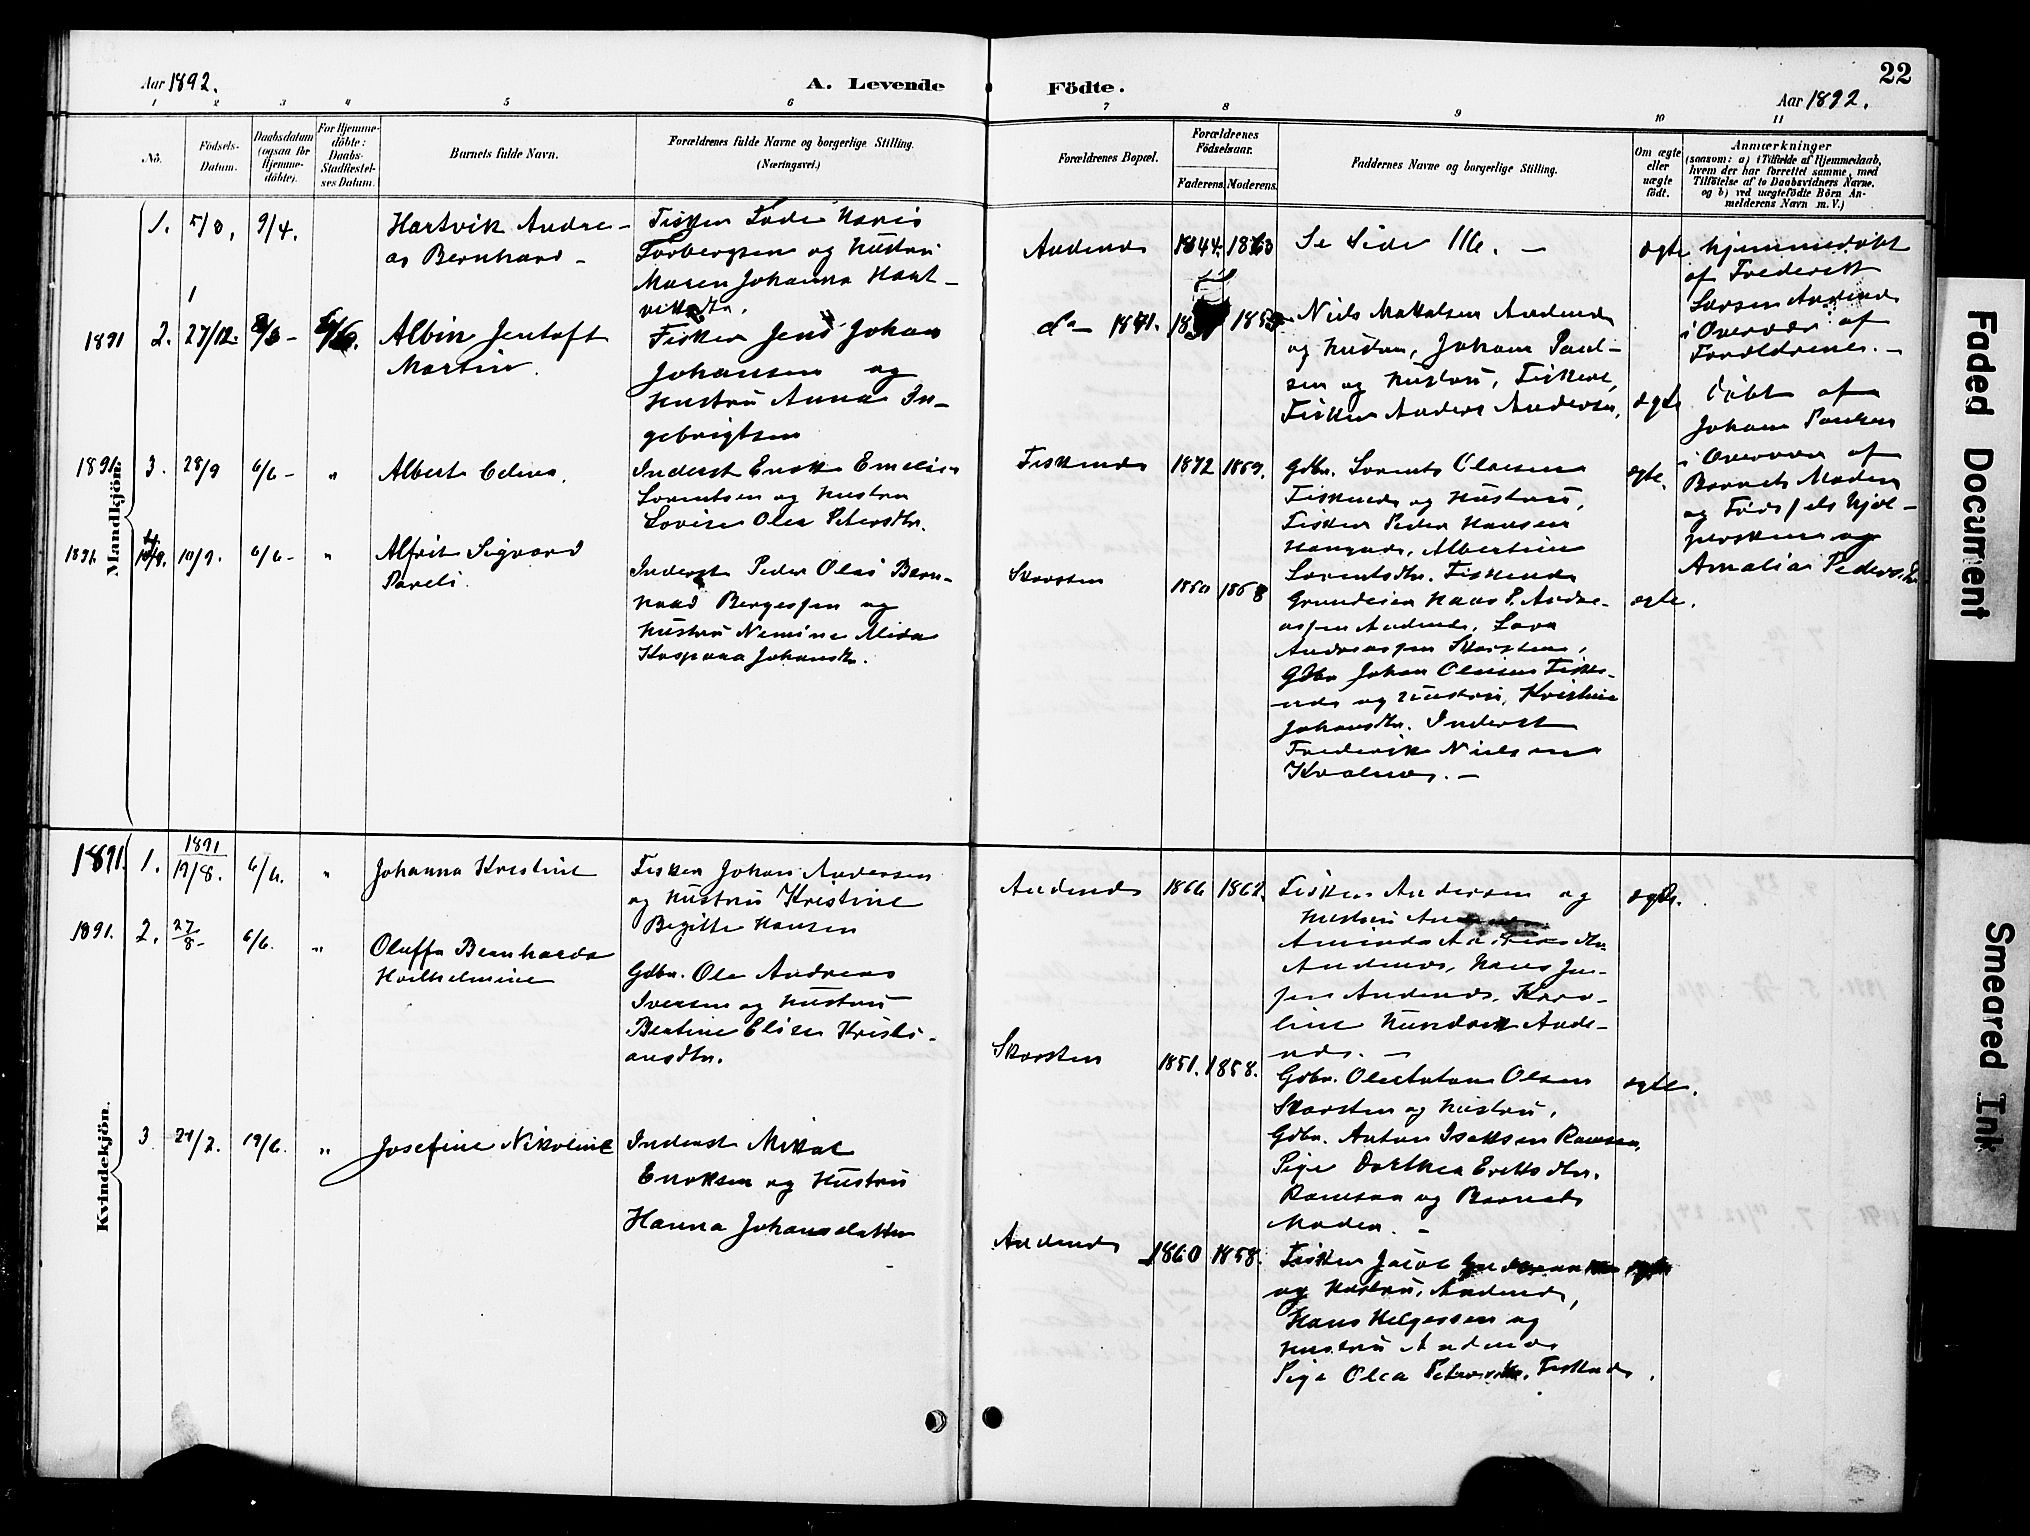 Aar 1892.
A. Levende
Födte.
22
Aar 1892.
1 2 3 4 5 6 7 8 9 10 11
No.
Födsels-
Datum.
Daabsdatum
(ogsaa for
Hjemme-
döbte).
For Hjemme-
döbte:
Daabs-
Stadfæstel-
ses Datum.
Barnets fulde Navn.
Forældrenes fulde Navne og borgerlige Stilling.
(Næringsvei.)
Forældrenes Bopæl.
Forældrenes
Födselsaar.
Faderens. Moderens.
Faddernes Navne og borgerlige Stilling.
Om ægte
eller
uægte
födt.
Anmærkninger
(saasom: a) i Tilfælde af Hjemmedaab,
hvem der har forrettet samme, med
Tilföielse af to Daabsvidners Navne,
og b) ved uægtefödte Börn An-
melderens Navn m. V.)
Mandkjön.
1. 5/3. 9/4.
Hartvik Andre-
as Bernhard -
Fisker
Torbergsen og Hustru
Maren Johanna Hart-
viksdtr.
Andenes 1844. 1863
Se Side 116. -
ægte
hjemmedøbt
af Frederik
Larsen Andenes
i Overvær af
Forældrene. -
1891 2. 27/12.
Albin Jentoft
Martin.
Fisker Jens Johan
Johansen og
Hustru Anna In-
gebrigtsen
do
Niels Mikkalsen Andenes
og Hustru, Johan Paul-
sen og Hustru, Fiskere,
Fisker Anders Andersen,
ægte
Døbt af
Johan Paulsen
i Overvær af
Barnets Moder
og
Amalia Pedersdtr.
1891. 3. 28/9 6/6 - "
Albert Edius.
Inderst Enok
Lorentsen og Hustru
Lovise Olea Petersdtr.
Fiskenes 1872 1869.
Gdbr. Lorents Olaisen
Fiskenes og Hustru,
Fisker Peder Hansen
Haugnes, Albertine
Lorentsdtr. Fiskenes
ægte.
1891. 10/9. 6/6 - "
Alfrit Sigvard
Pareli.
Inderst Peder Olai Bern-
hard Bergessen og
Hustru Nemine Alida
Kaspara Johansdtr.
Skarsten 1860 1868
Grundeier Hans P. Andre-
assen Andenes, Lava
Andreassen Skarsten,
Gdbr Johan Olaisen Fiske-
nes og Hustru, Kristine
Johansdtr. Inderst
Frederik Nielsen
Kvalnes. -
ægte.
Kvindekjön.
1891. 1. 1891
19/8. 6/6. "
Johanna Kristine
Fisker Johan Andersen
og Hustru Kristine
Begitte Hansen
Andenes 1866 1862.
Fisker Andersen og
Hustru
Andenes, Hans Je-
sen Andenes, Karo-
line Ande-
nes. -
ægte.
1891. 2. 27/8 - 6/6. "
Oluffa Bernharda
Hvilhelmine
Gdbr. Ole Andreas
Iversen og Hustru
Bertine Elise Kristi-
ansdtr.
Skarsten 1851. 1858.
Gdbr. Ole Anton Olsen
Skarsten og Hustru,
Gdbr. Anton Isaksen Ramsaa,
Pige Dorthea Eriksdtr.
Ramsaa og Barnets
Moder. -
ægte.
3. 21/2. 19/6. "
Josefine Nikoline
Inderst Mikal
Enoksen og Hustru
Hanna Johansdatter
Andenes 1860 1858.
Fisker Jacob
og Hustru, Andenes,
Hans Helgessen og
Hustru Andenes
Pige Olea Petersdtr. Fiskenes.
Faded Document
Smeared Ink